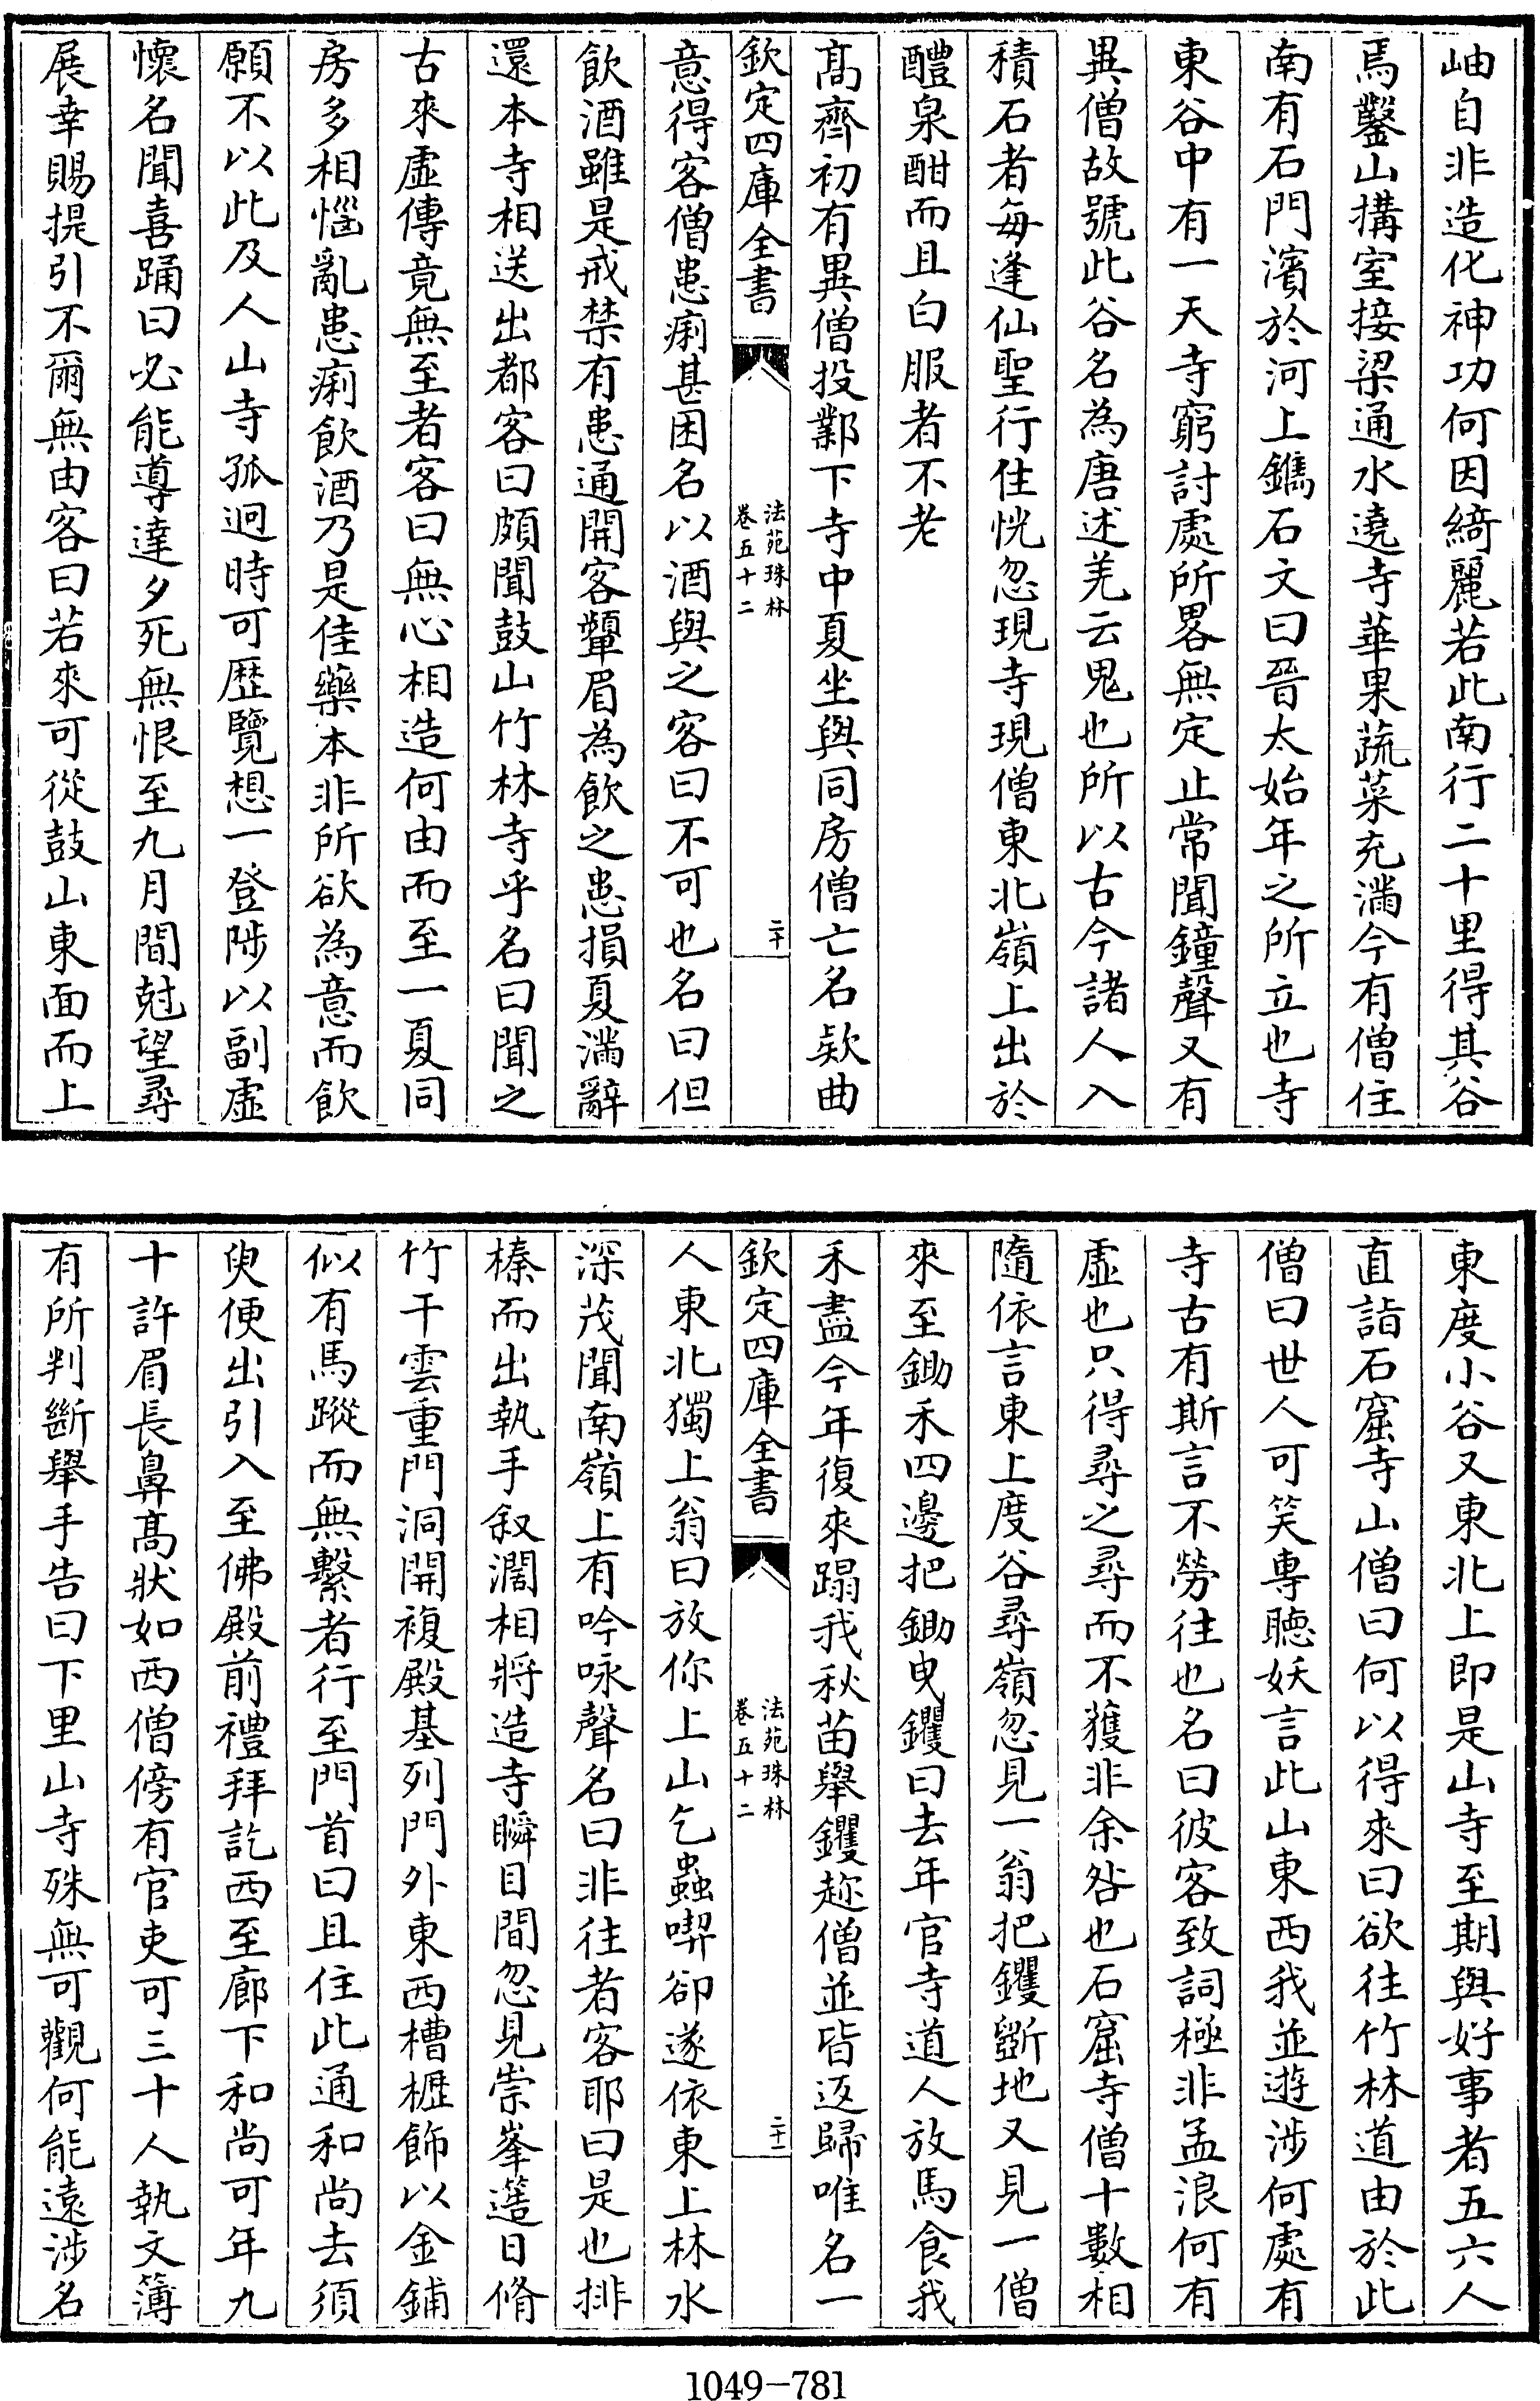 岫自非造化神功何因綺麗若此南行二十里得其谷
焉鑿山構室接梁通水遶寺華果蔬菜充滿今有僧住
南有石門濱於河上鐫石文曰晉太始年之所立也寺
東谷中有一天寺窮討處所畧無定止常聞鐘聲又有
異僧故號此谷名為唐述羌云鬼也所以古今諸人入
積石者每逢仙聖行住恍忽現寺現僧東北嶺上出於
醴泉酣而且白服者不老
髙齊初有異僧投鄴下寺中夏坐與同房僧亡名欵曲
欽定四庫全書
法苑珠林
卷五十二
二十
意得客僧患痢甚困名以酒與之客曰不可也名曰但
飲酒雖是戒禁有患通開客顰眉為飲之患損夏滿辭
還本寺相送出都客曰頗聞鼓山竹林寺乎名曰聞之
古來虛傳竟無至者客曰無心相造何由而至一夏同
房多相惱亂患痢飲酒乃是佳藥本非所欲為意而飲
願不以此及人山寺孤迥時可歴覽想一登陟以副虛
懷名聞喜踊曰必能導達夕死無恨至九月間尅望尋
展幸賜提引不爾無由客曰若來可從鼓山東面而上
東度小谷又東北上即是山寺至期與好事者五六人
直詣石窟寺山僧曰何以得來曰欲往竹林道由於此
僧曰世人可笑專聽妖言此山東西我並遊涉何處有
寺古有斯言不勞往也名曰彼客致詞極非孟浪何有
虛也只得尋之尋而不獲非余咎也石窟寺僧十數相
隨依言東上度谷尋嶺忽見一翁把钁斵地又見一僧
來至鋤禾四邊把鋤曳钁曰去年官寺道人放馬食我
禾盡今年復來蹋我秋苗舉钁趂僧並皆返歸唯名一
欽定四庫全書
法苑珠林
卷五十二
二十一
人東北獨上翁曰放你上山乞蟲喫卻遂依東上林水
深茂聞南嶺上有吟咏聲名曰非往者客耶曰是也排
榛而出執手叙濶相將造寺瞬目間忽見崇峯簉日脩
竹干雲重門洞開複殿基列門外東西槽櫪飾以金鋪
似有馬蹤而無繫者行至門首曰且住此通和尚去須
臾便出引入至佛殿前禮拜訖西至廊下和尚可年九
十許眉長鼻髙狀如西僧傍有官吏可三十人執文簿
有所判斷舉手告曰下里山寺殊無可觀何能遠涉名
1049-781